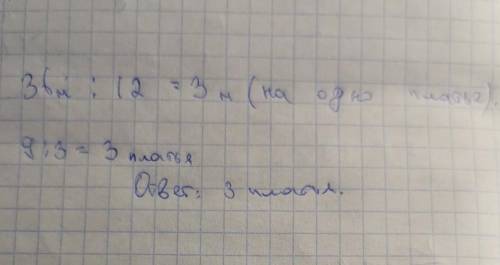 36м : 12 = 3м (на одно платье)
9 : 3 = 3 платья
Ответ: 3 платья.